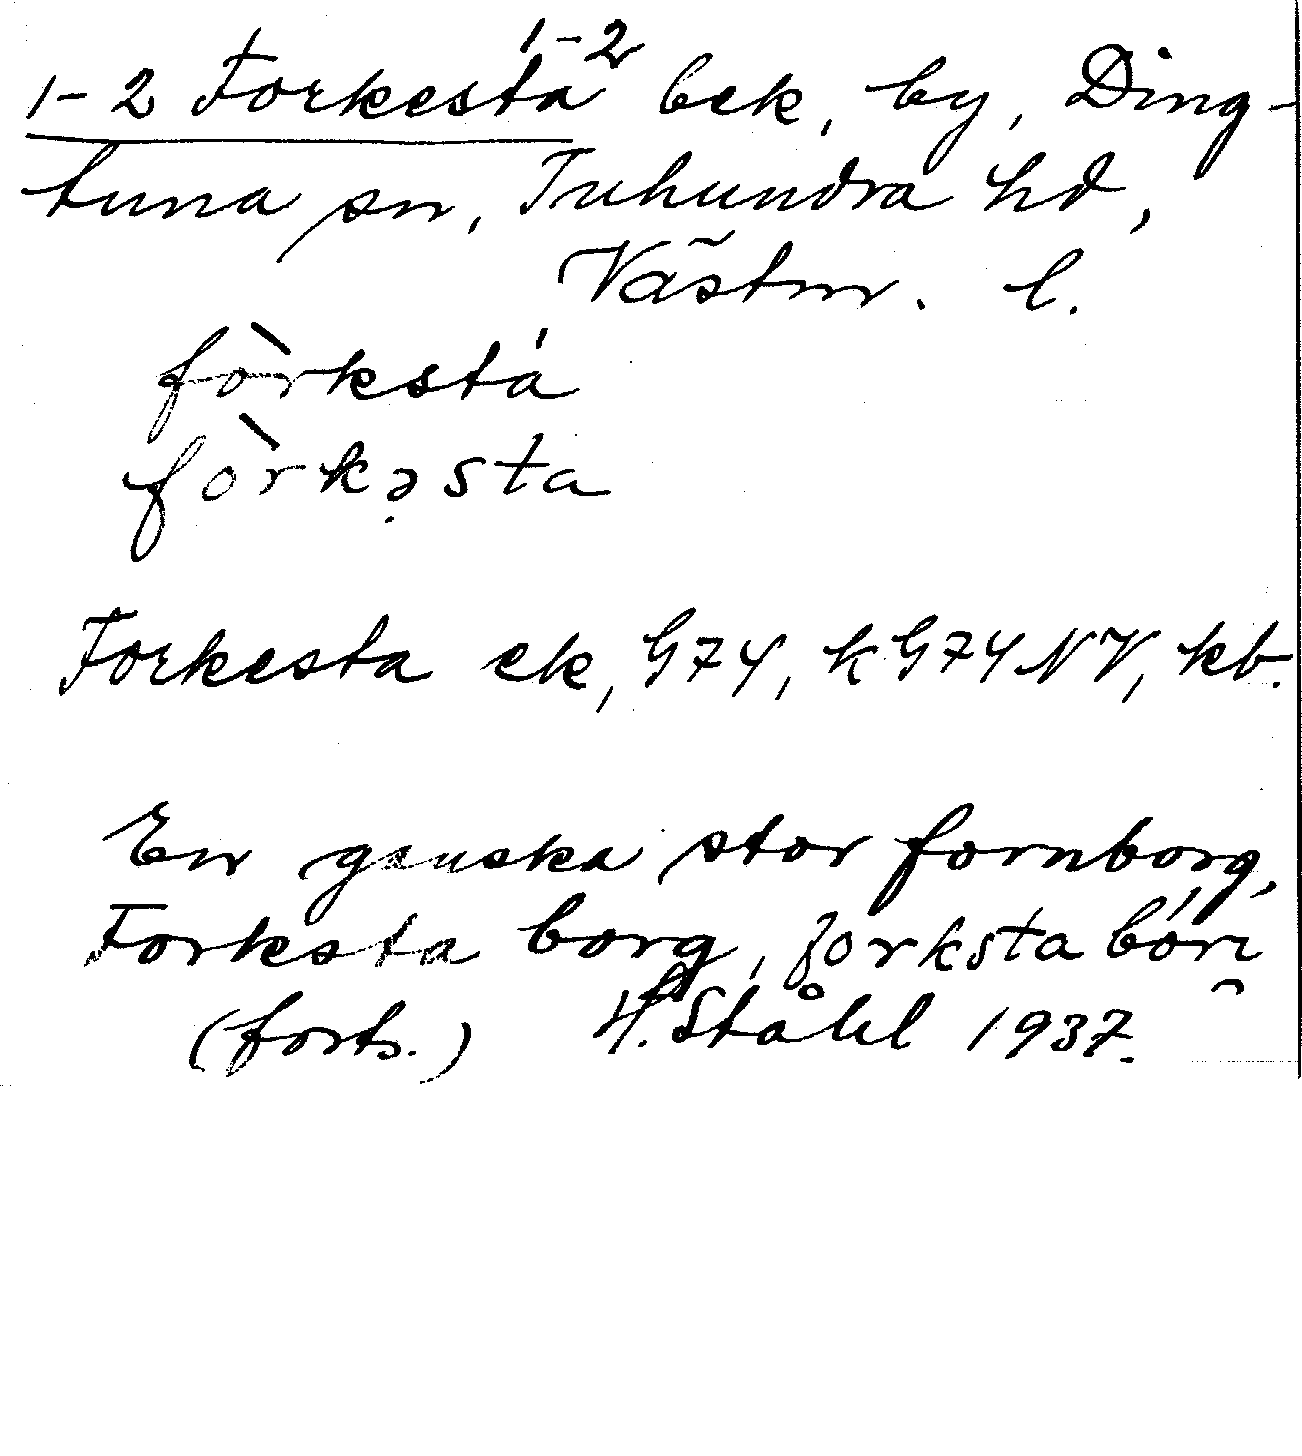 1-2 Forkesta 1-2 bek, by, Ding-
tuna sn, Tuhundra hd,
Västm. l.
fòrkstá
fòrkəsta
Forkesta ek, G74, kG74NV, kb.
En ganska stor fornborg,
Forksta borg, forksta bórı̯
(forts.) H. Ståhl 1937.